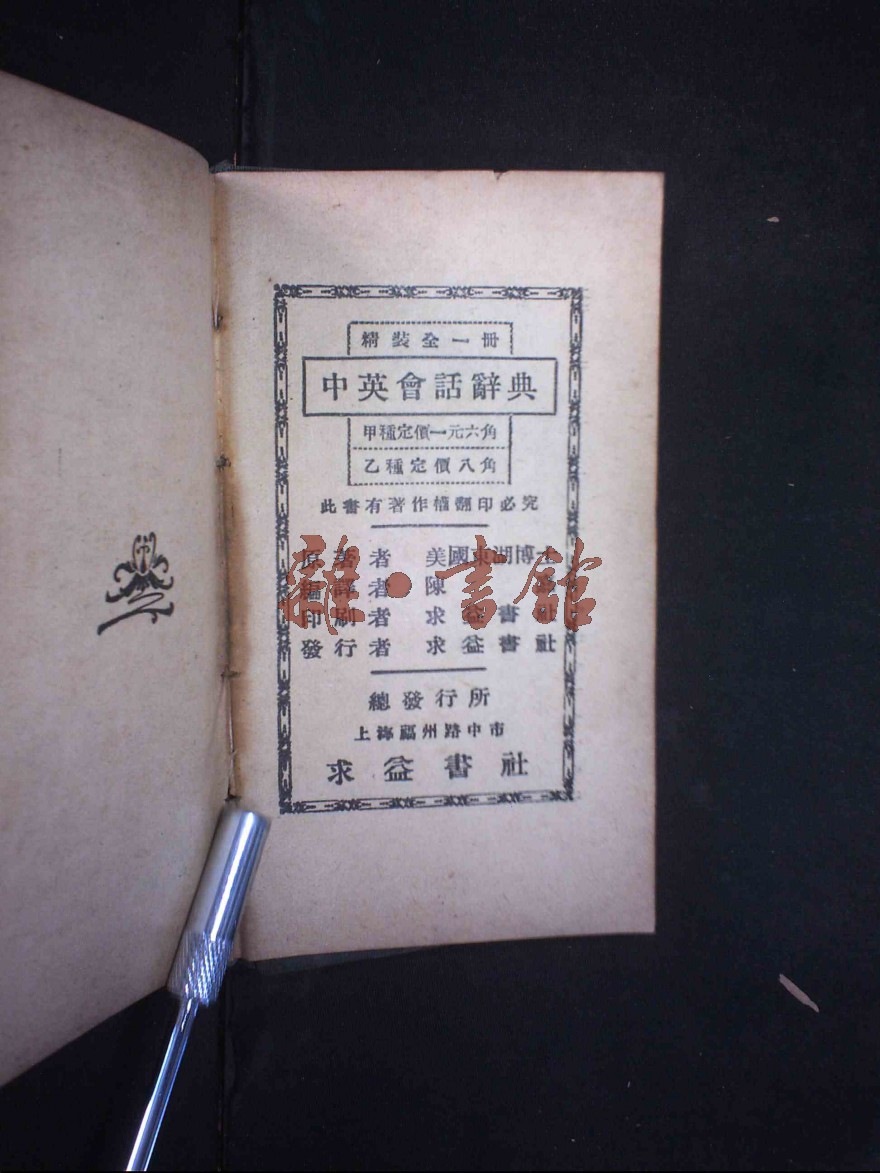 精裝全一冊
中英會話辭典
甲種定價一元六角
乙種定價八角
此書有著作權翻印必究
原著者 美國東湖博士
編譯者 陳
印刷者 求益書社
發行者 求益書社
總發行所
上海福州路中市
求益書社
雜·書館